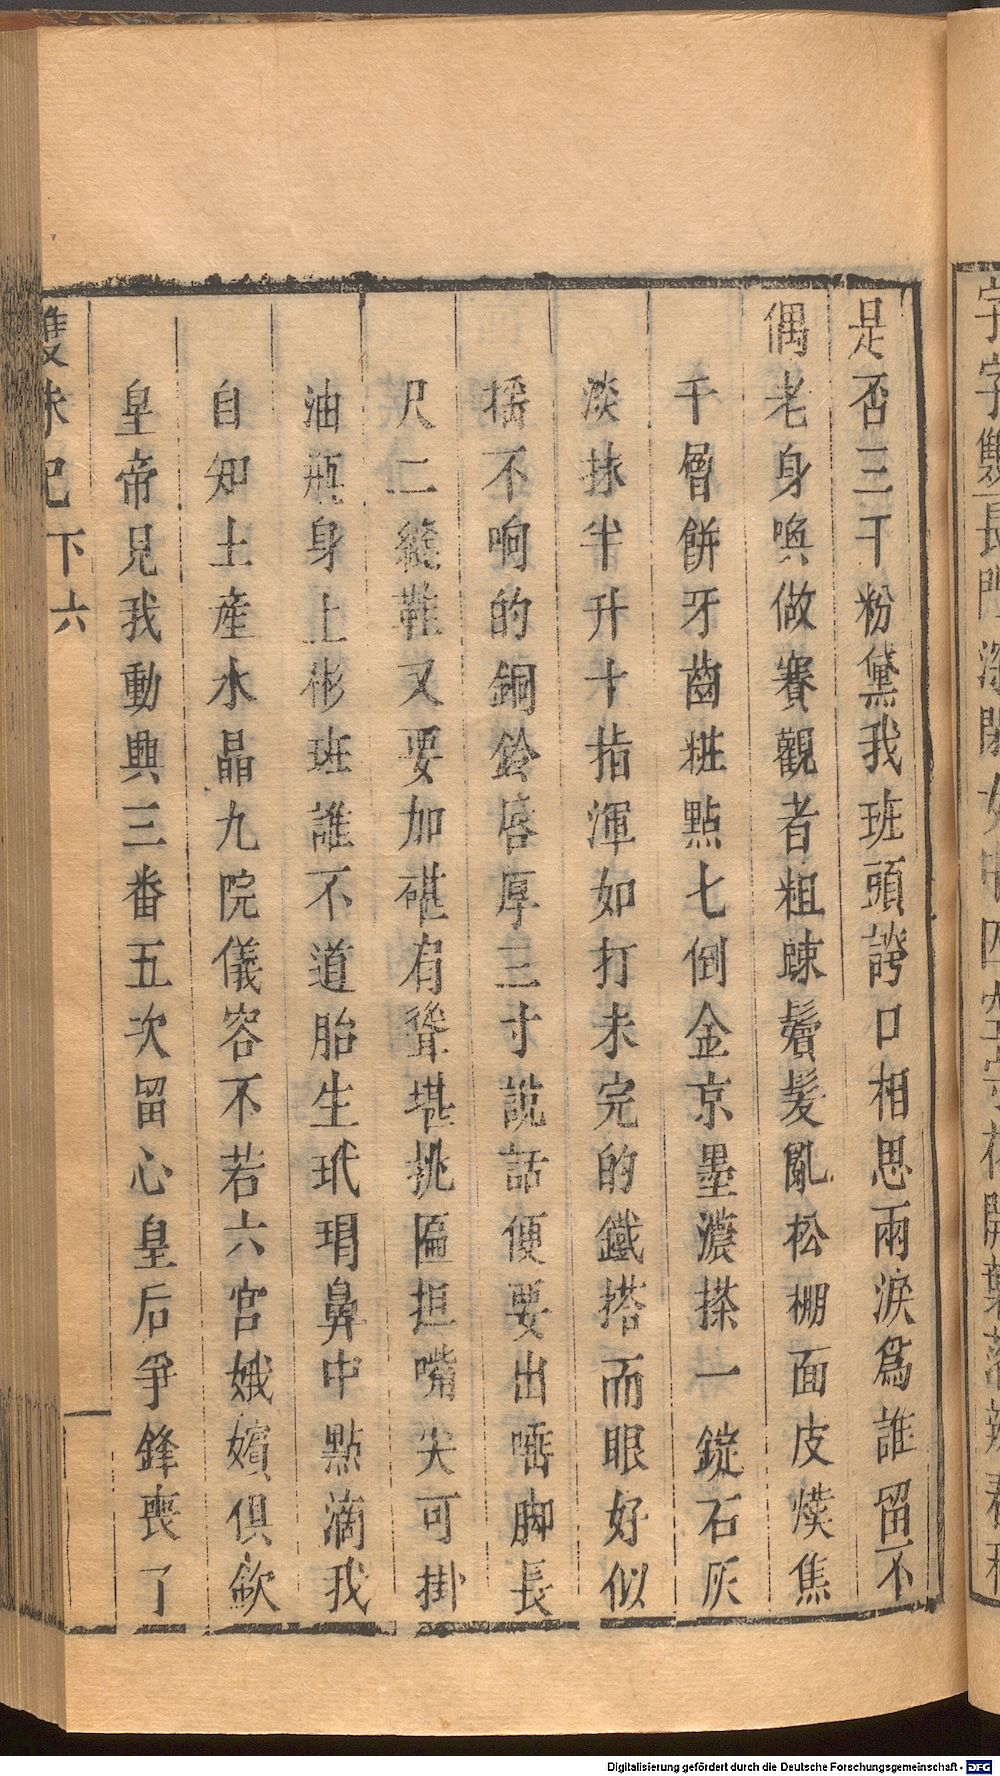 是否三千粉黛我班頭誇口相思兩淚爲誰留不
偶老身喚做賽觀者粗踈鬢髮亂松棚面皮燌焦
千層餅牙齒粧點七倒金京墨濃搽一錠石灰
淡抹半升十指渾如打未完的鐵搭而眼好似
搖不响的銅鈴唇厚三寸說話便要出唾脚長
尺二縫鞋又要加碪有聳堪挑匾担嘴尖可掛
油瓶身上彬班誰不道胎生玳瑁鼻中點滴我
自知土產水晶九院儀容不若六宮娥嬪俱欽
皇帝見我動興三番五次留心皇后爭鋒喪了
雙珠記 下 六
字字雙長門深閉
開葉落
Digitalisierung gefördert durch die Deutsche Forschungsgemeinschaft - DFG